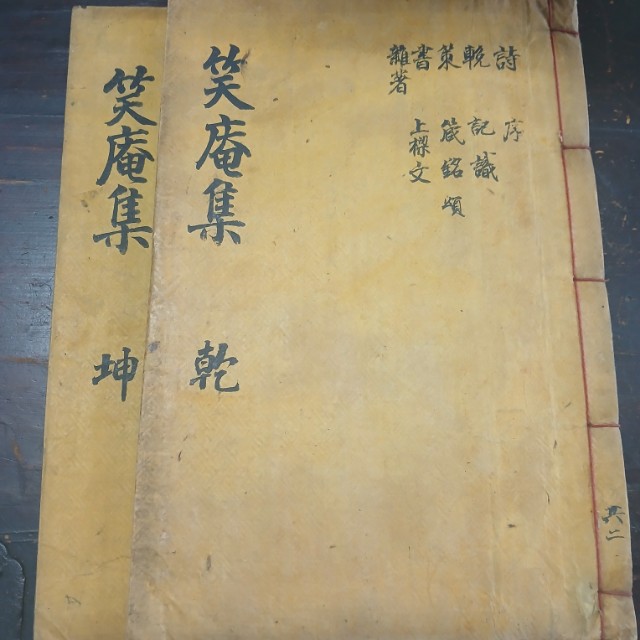 詩 序
輓 記識
策 箴銘頌
書 上樑文
雜著
笑庵集 乾
笑庵集 坤
共二